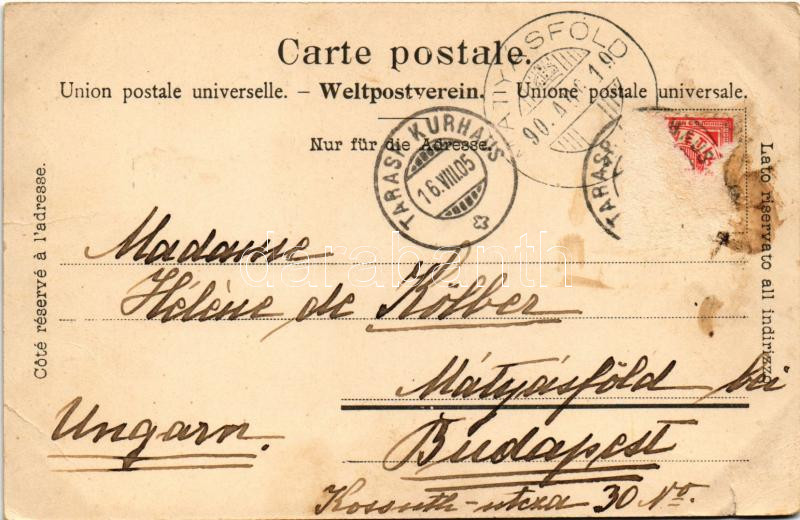 Carte postale.
Union postale universelle. – Weltpostverein. – Unione postale universale.
Nur für die Adresse.
MATYASFÖLD
TARASP KURHAUS
16.VIII.05
TARASP
Côté réservé à l'adresse.
Lato riservato all indirizzo
darabanth
Madame
Hélène de Kölber
Mátyásföld bei
Ungarn.
Budapest
Kossuth-utcza 30 No.